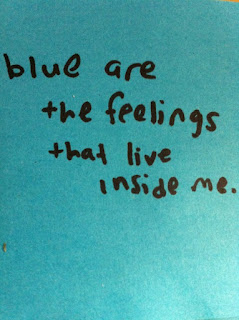 blue are
the feelings
that live
inside me.